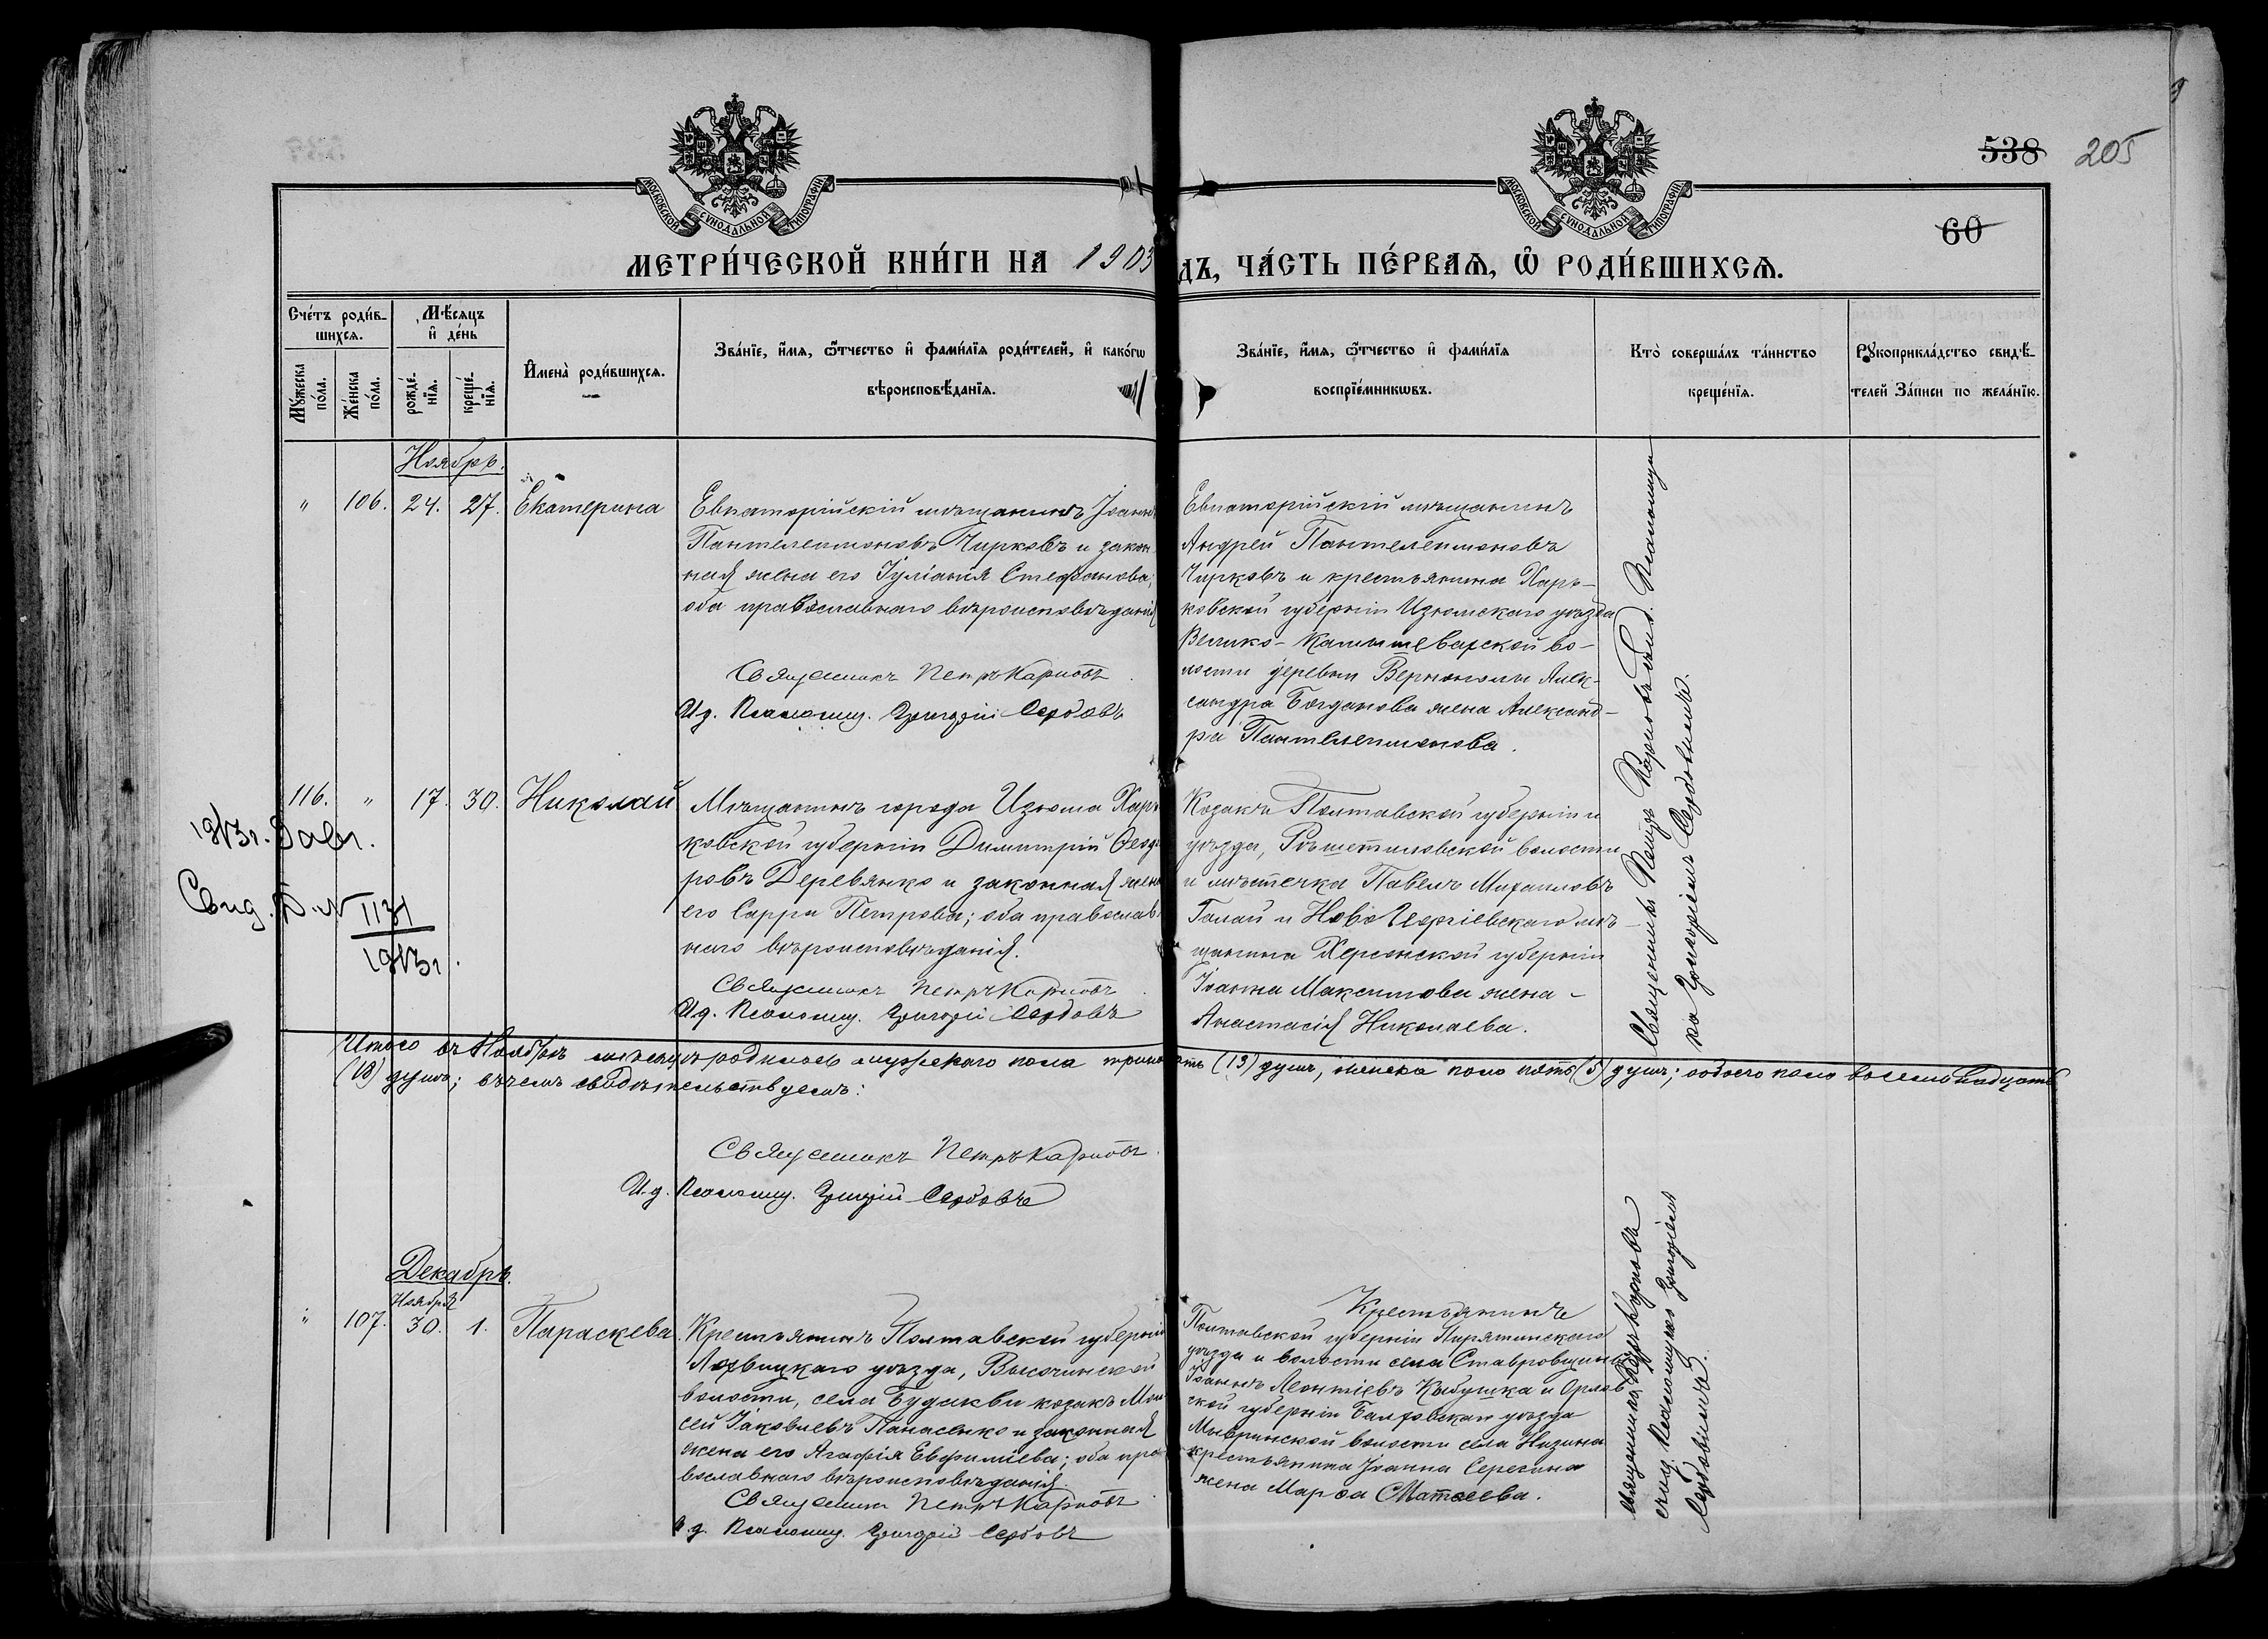 538 205
60
МОСКОВСКОЙ СѴНОДАЛЬНОЙ ТИПОГРАФІИ
МОСКОВСКОЙ СѴНОДАЛЬНОЙ ТИПОГРАФІИ
МЕТРИ́ЧЕСКОЙ КНИ́ГИ НА 1903 ДЪ, ЧА́СТЬ ПЕ́РВАѦ, Ѡ҆ РОДИ́ВШИХСѦ.
Сче́тъ роди́в-
шихсѧ.
Мꙋ́жеска
по́ла.
Же́нска
по́ла.
Мѣ́сѧцъ
и҆ де́нь
рожде́-
нїѧ.
креще́-
нїѧ.
И҆мена̀ роди́вшихсѧ.
Зва́нїе, и҆́мѧ, ѻ҆́тчество и҆ фами́лїѧ роди́телей, и҆ како́гѡ
вѣроисповѣ́данїѧ.
Зва́нїе, и҆́мѧ, ѻ҆́тчество и҆ фами́лїѧ
воспрїе́мникѡвъ.
Кто̀ соверша́лъ та́инство
креще́нїѧ.
Рꙋкоприкла́дство свидѣ́-
телей За́писи по жела́нїю.
Ноябрь.
" 106. 24. 27. Екатерина
Евпаторійскій мѣщанинъ Іоаннъ
Пантелеимоновъ Чирковъ и закон
ная жена его Іуліанія Стефанова;
оба православнаго вѣроисповѣданія
Священникъ Петръ Карповъ
И.д. Псаломщ. Григорій Сердовъ
Евпаторійскій мѣщанинъ
Андрей Пантелеимоновъ
Чирковъ и крестьянина Харь-
ковской губерніи Изюмскаго уѣзда
Велико-Камышевахской во-
лости деревни Алек-
сандра Богданова жена Александ-
ра Пантелеимонова.
116. " 17. 30. Николай
Мѣщанинъ города Изюма Харь
ковской губерніи Димитрій Ѳеодо
ровъ Деревянко и законная жена
его Сарра Петрова; оба православ
наго вѣроисповѣданія.
Священникъ Петръ Карповъ
И.д. Псаломщ. Григорій Сердовъ
Козакъ Полтавской губерніи и
уѣзда, Рѣшетиловской волости
и мѣстечка Павелъ Михаиловъ
Галай и Ново Георгіевскаго мѣ-
щанина Херсонской губерніи
Іоанна Максимова жена -
Анастасія Николаева.
Священникъ Петръ Карповъ съ и.д. Псаломщи
ка Григоріемъ Сердовымъ.
1913 г.
Свид. № 1131
1913 г.
Итого въ Ноябрѣ мѣсяцѣ родилось мужескаго пола тринадцать (13) душъ, женска пола пять (5) душъ; обоего пола восемнадцать
(18) душъ; въ чемъ свидѣтельствуемъ:
Священникъ Петръ Карповъ
И.д. Псаломщ. Григорій Сердовъ
Декабрь.
Ноября
" 107. 30. 1. Параскева
Крестьянинъ Полтавской губерніи
Лохвицкаго уѣзда, Высочинской
волости, села Будакви козакъ Мои
сей Іаковлевъ Панасенко и законная
жена его Агафія Евфиміева; оба пра
вославнаго вѣроисповѣданія
Священникъ Петръ Карповъ
И.д. Псаломщ. Григорій Сердовъ
Крестьянинъ
Полтавской губерніи Пирятинскаго
уѣзда и волости села Ставровщины
Іоаннъ Леонтіевъ Кабушка и Орлов
ской губерніи уѣзда
волости села
крестьянина Іоанна Серегина
жена Марѳа Матѳеева.
Священникъ Петръ Карповъ
съ и.д. Псаломщика Григоріемъ
Сердовымъ.